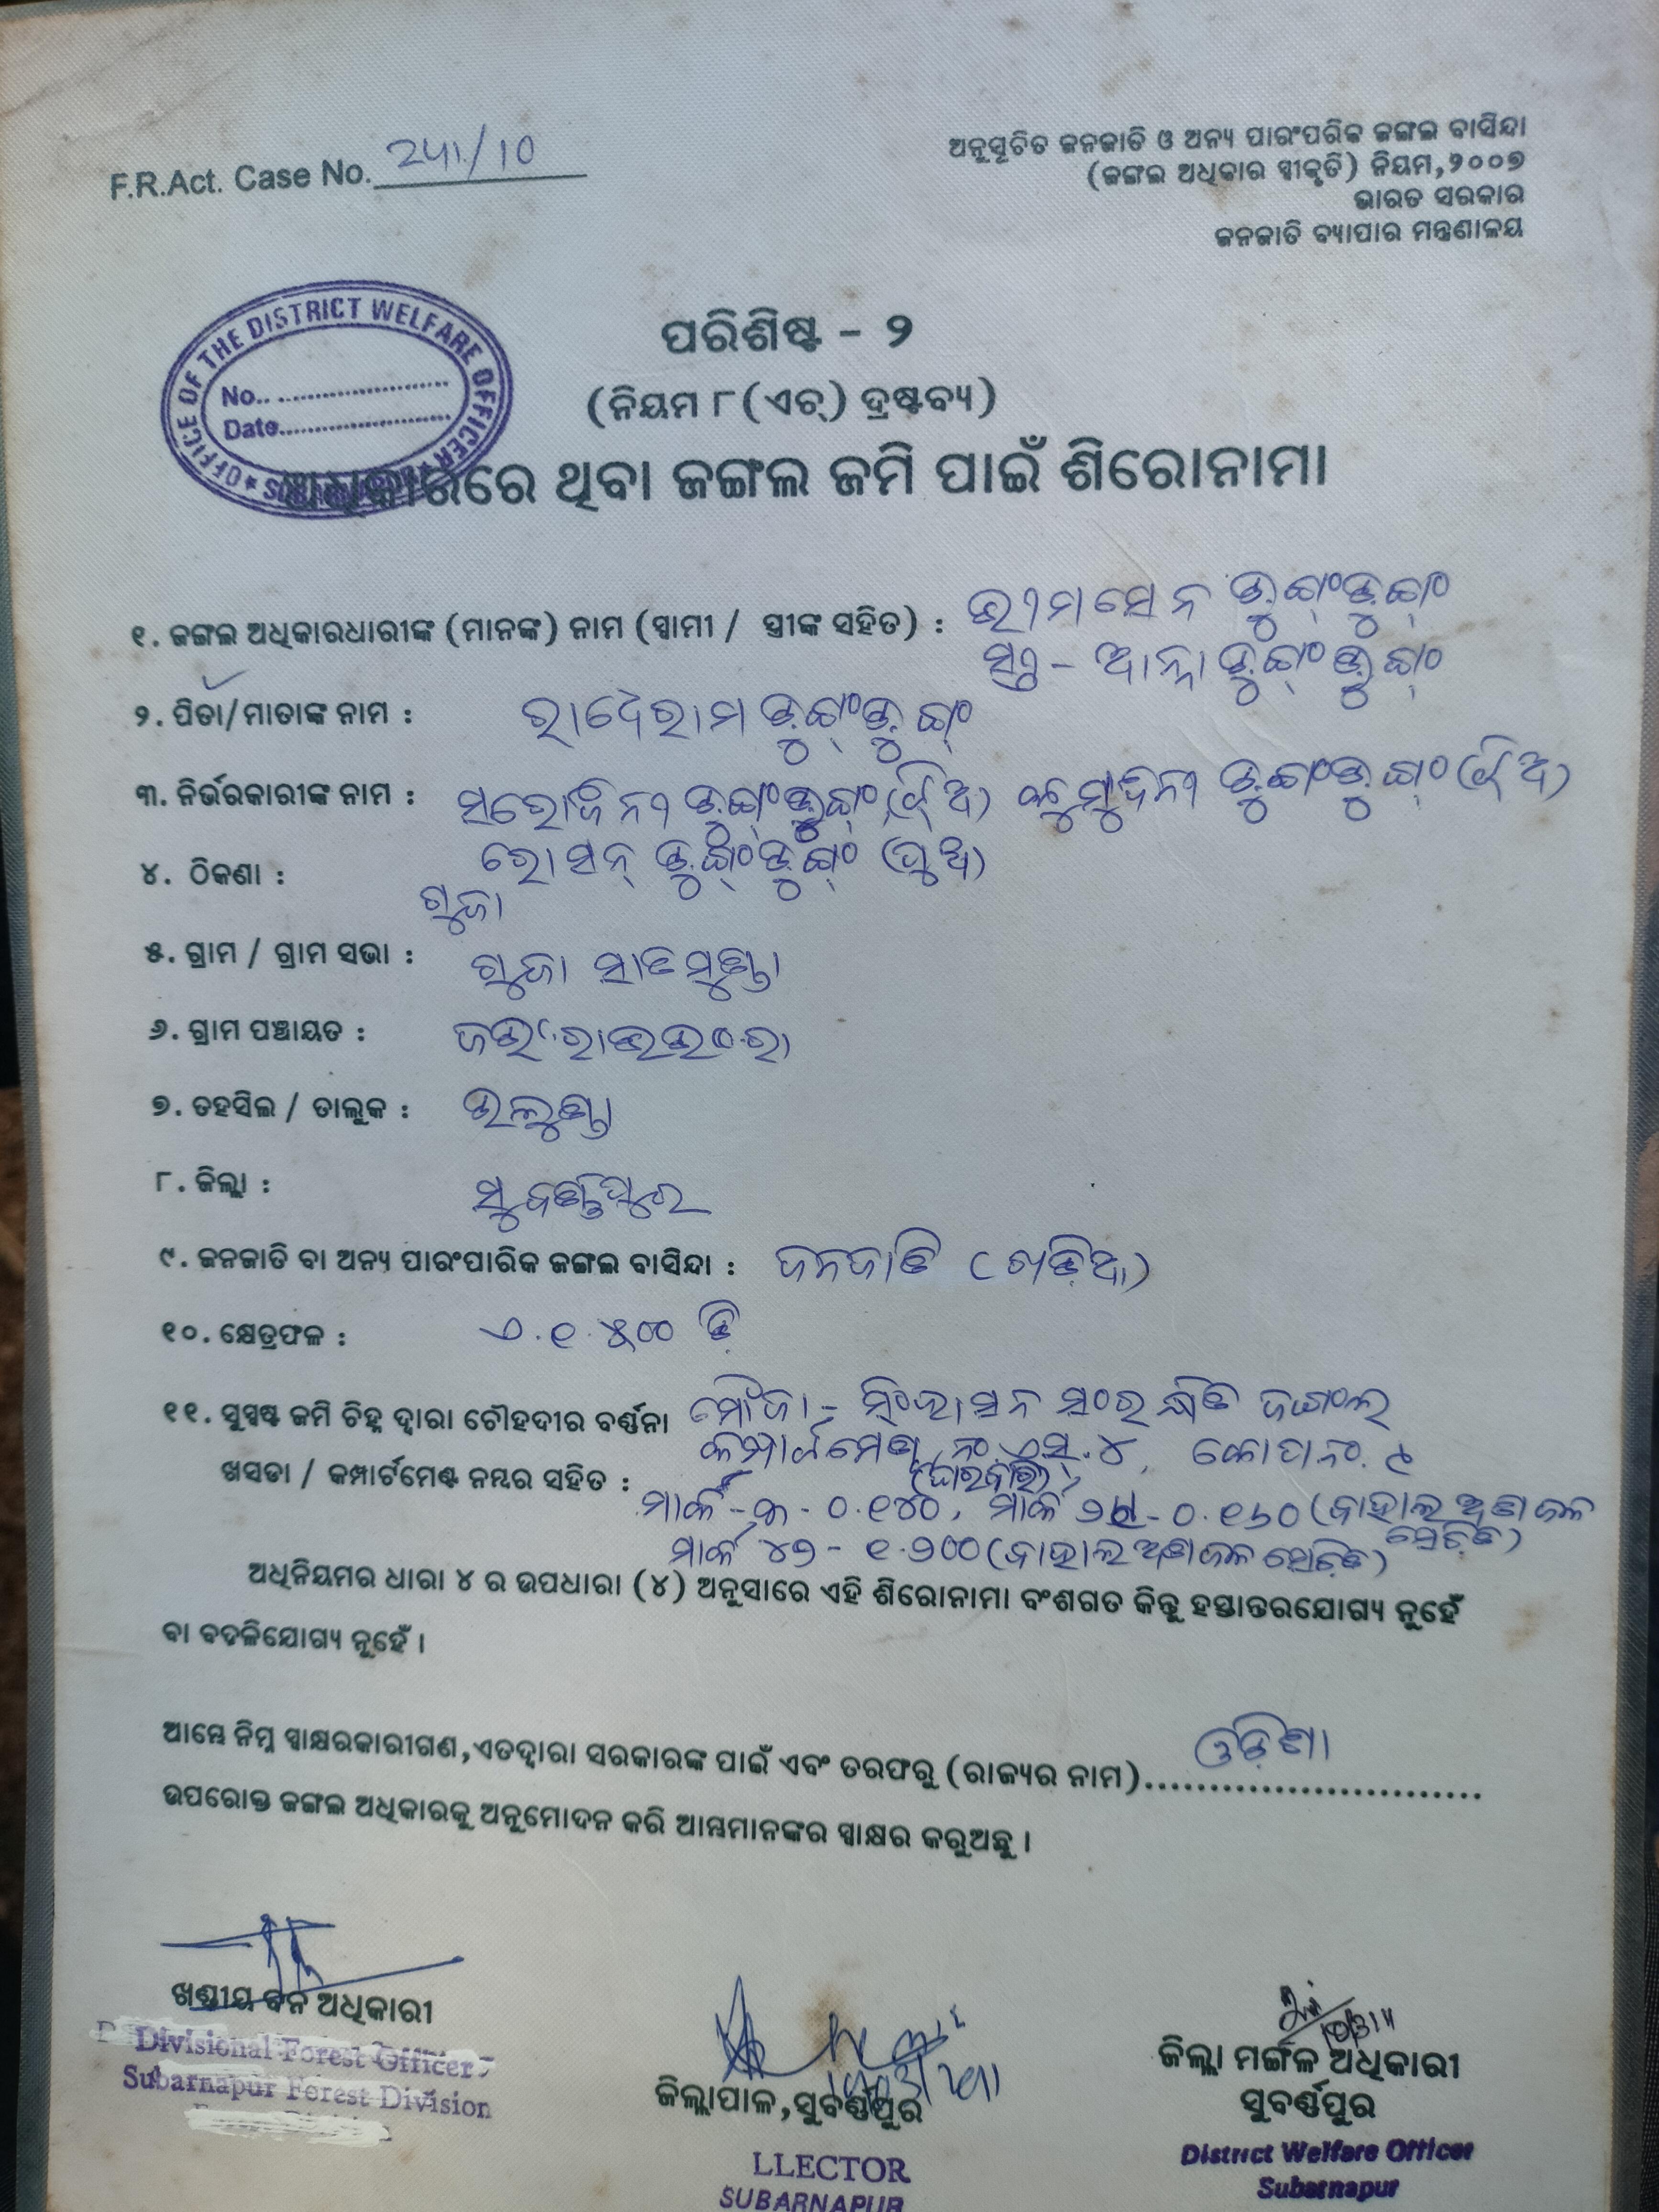 F.R.Act. Case No. 241/10
ଅନୁସୂଚିତ ଜନଜାତି ଓ ଅନ୍ୟ ପାରଂପରିକ ଜଙ୍ଗଲ ବାସିନ୍ଦା
(ଜଙ୍ଗଲ ଅଧିକାର ସ୍ୱୀକୃତି) ନିୟମ,୨୦୦୭
ଭାରତ ସରକାର
ଜନଜାତି ବ୍ୟାପାର ମନ୍ତ୍ରଣାଳୟ
OFFICE OF THE DISTRICT WELFARE OFFICER
No.
Date
ପରିଶିଷ୍ଟ - ୨
(ନିୟମ ୮(ଏଚ୍) ଦ୍ରଷ୍ଟବ୍ୟ)
ଅଧିକାରରେ ଥିବା ଜଙ୍ଗଲ ଜମି ପାଇଁ ଶିରୋନାମା
୧. ଜଙ୍ଗଲ ଅଧିକାରଧାରୀଙ୍କ (ମାନଙ୍କ) ନାମ (ସ୍ୱାମୀ / ସ୍ତ୍ରୀଙ୍କ ସହିତ) : ଭୀମସେନ ଡୁଙ୍ଗଡୁଙ୍ଗ
ସ୍ତ୍ରୀ -
୨. ପିତା/ମାତାଙ୍କ ନାମ :
୩. ନିର୍ଭରକାରୀଙ୍କ ନାମ : ସରୋଜିନୀ (ଝିଅ) କୁମୁଦିନୀ (ଝିଅ)
(ପୁଅ)
୪. ଠିକଣା : ଗୁଜା
୫. ଗ୍ରାମ / ଗ୍ରାମ ସଭା : ଗୁଜା
୬. ଗ୍ରାମ ପଞ୍ଚାୟତ :
୭. ତହସିଲ / ତାଲୁକ : ଉଲୁଣ୍ଡା
୮. ଜିଲ୍ଲା : ସୁବର୍ଣ୍ଣପୁର
୯. ଜନଜାତି ବା ଅନ୍ୟ ପାରଂପାରିକ ଜଙ୍ଗଲ ବାସିନ୍ଦା : ଜନଜାତି (ଖଡ଼ିଆ)
୧୦. କ୍ଷେତ୍ରଫଳ : ଏ.୧.୫୦୦ ଡି
୧୧. ସୁସ୍ପଷ୍ଟ ଜମି ଚିହ୍ନ ଦ୍ୱାରା ଚୌହଦୀର ବର୍ଣ୍ଣନା ମୌଜା - ସିଂହାସନ ସଂରକ୍ଷିତ ଜଙ୍ଗଲ
କମ୍ପାର୍ଟମେଣ୍ଟ ନଂ ଏସ୍.୪,
ଖସଡା / କମ୍ପାର୍ଟମେଣ୍ଟ ନମ୍ବର ସହିତ : (ଘରବାରି)
ମାର୍କ - ୦.୧୪୦, ମାର୍କ - ୦.୧୬୦ (ବାହାଲ
ମାର୍କ ୪୭ - ୧.୨୦୦ (ବାହାଲ
ଅଧିନିୟମର ଧାରା ୪ ର ଉପଧାରା (୪) ଅନୁସାରେ ଏହି ଶିରୋନାମା ବଂଶଗତ କିନ୍ତୁ ହସ୍ତାନ୍ତରଯୋଗ୍ୟ ନୁହେଁ
ବା ବଦଳିଯୋଗ୍ୟ ନୁହେଁ ।
ଆମ୍ଭେ ନିମ୍ନ ସ୍ୱାକ୍ଷରକାରୀଗଣ,ଏତଦ୍ୱାରା ସରକାରଙ୍କ ପାଇଁ ଏବଂ ତରଫରୁ (ରାଜ୍ୟର ନାମ) ଓଡ଼ିଶା
ଉପରୋକ୍ତ ଜଙ୍ଗଲ ଅଧିକାରକୁ ଅନୁମୋଦନ କରି ଆମ୍ଭମାନଙ୍କର ସ୍ୱାକ୍ଷର କରୁଅଛୁ ।
ଖଣ୍ଡୀୟ ବନ ଅଧିକାରୀ
Divisional Forest Officer
Subarnapur Forest Division
ଜିଲ୍ଲାପାଳ,ସୁବର୍ଣ୍ଣପୁର
LLECTOR
SUBARNAPUR
ଜିଲ୍ଲା ମଙ୍ଗଳ ଅଧିକାରୀ
ସୁବର୍ଣ୍ଣପୁର
District Welfare Officer
Subarnapur